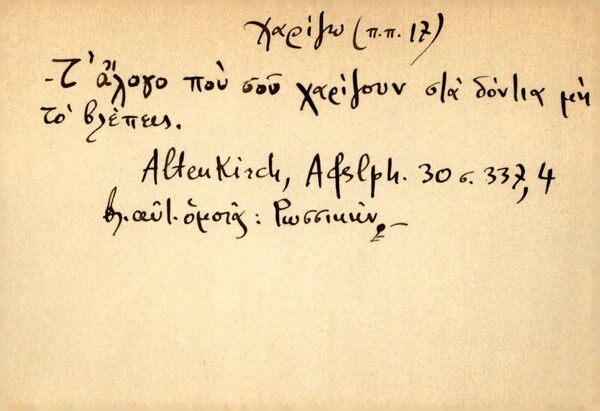 χαρίζω (π.π. 17)
- Τ' ἄλογο ποὺ σοῦ χαρίζουν στὰ δόντια μὴ
τὸ βλέπεις.
Altenkirch, Afslph. 30 σ. 337, 4
βλ. αὐτ. ὁμοίας: Ρωσσικήν.–